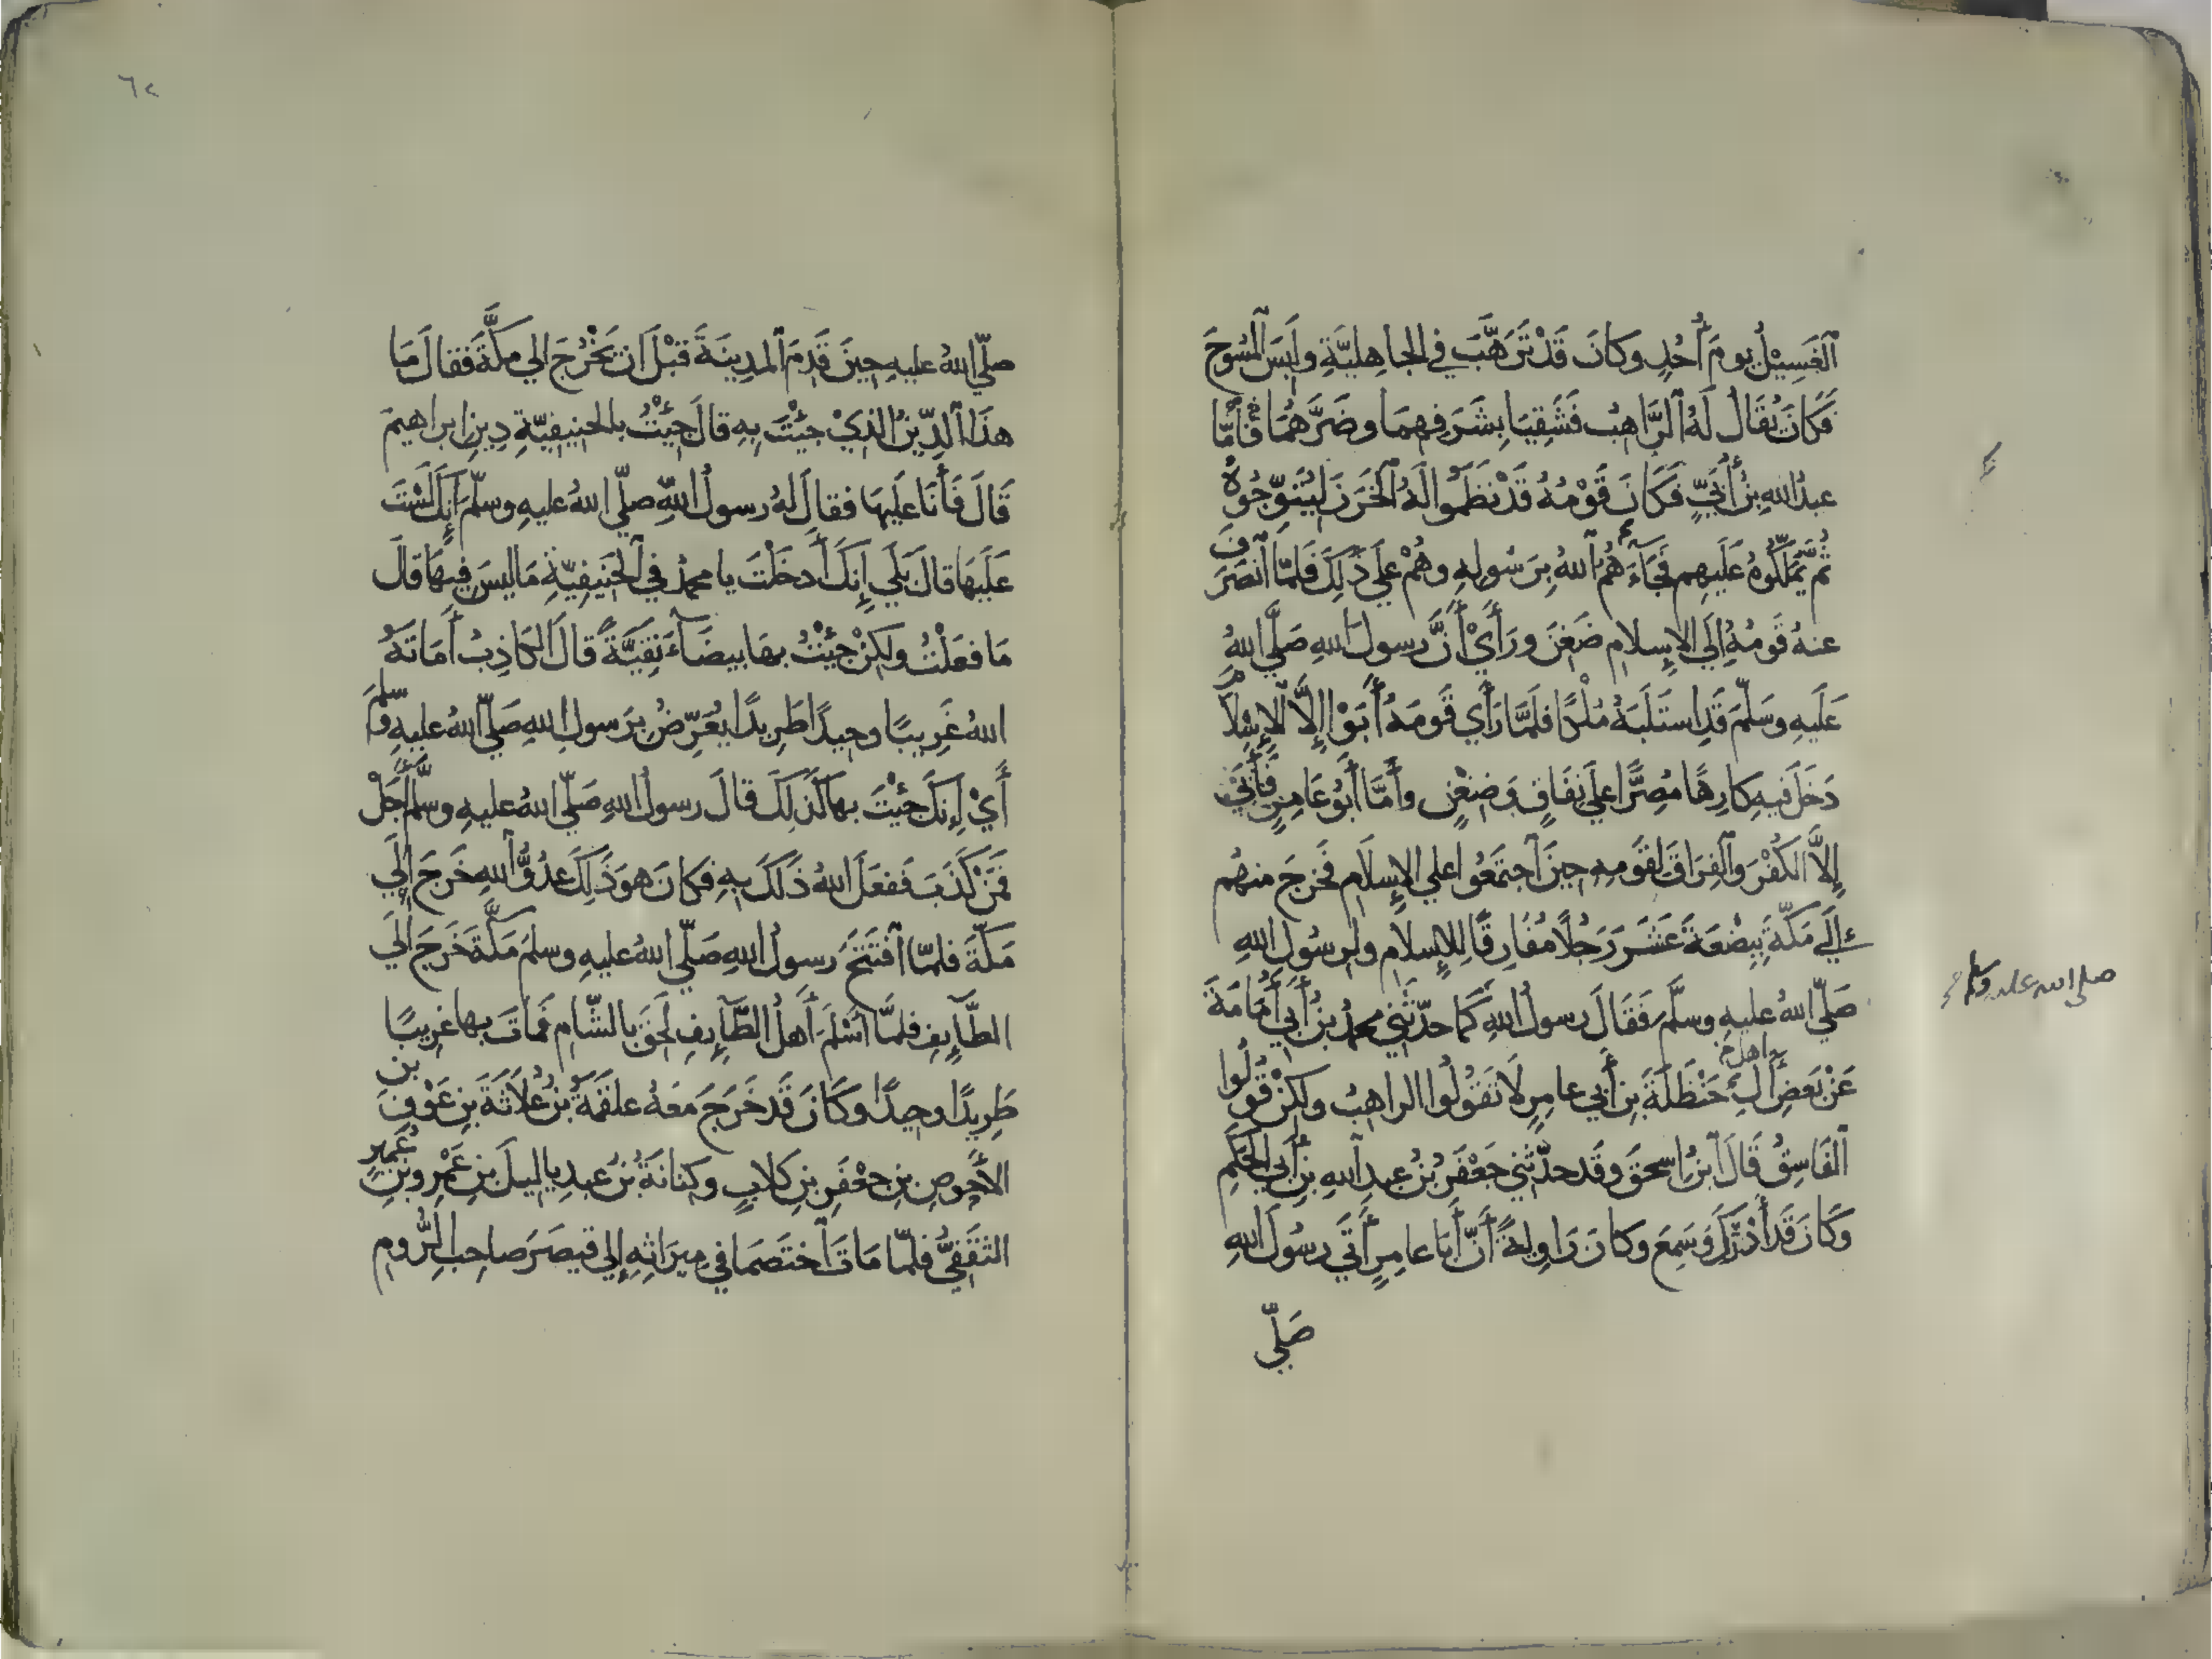 الغَسِيْلُ يومَ أُحُدٍ وكانَ قَدْ تَرَهَّبَ في الجاهِليَّةِ ولَبِسَ المُسُوحَ
فَكَانَ يُقَالُ لَهُ الرَّاهِبُ فَشَقِيَا بِشَرَفِهِمَا وضَرَّهُمَا فَأَمَّا
عبدُ اللهِ بنُ أُبَيٍّ فَكَانَ قَوْمُهُ قَدْ نَظَمُوا لَهُ الخَرَزَ لِيُتَوِّجُوهُ
ثُمَّ يُمَلِّكُوهُ عَلَيهِم فَجَآءَهُمُ اللهُ بِرَسُولِهِ وهُمْ عَلَي ذَلِكَ فَلمّا انْصَرَفَ
عنهُ قَومُهُ إلَي الإسلامِ ضَغِنَ ورَأَيْ أَنَّ رسولَ اللهِ صَلَّي اللهُ
عَلَيهِ وسَلَّمَ قَدِ استَلَبَهُ مُلْكًا فلَمَّا رَأَي قَومَهُ أَبَوْا إلَّا الإسلامَ
دَخَلَ فيهِ كارِهًا مُصِرًّا علي نِفَاقٍ وَضِغْنٍ وأَمَّا أَبُو عَامِرٍ فأَبَي
إلاَّ الكُفْرَ والفِرَاقَ لقَومِهِ حِينَ اجتَمَعُوا علي الإسلَامِ فَخَرجَ منهُم
إلَي مَكَّةَ بِبِضْعَةَ عَشَرَ رَجُلًا مُفَارِقًا لِلإسلامِ ولِرسُولِ اللهِ
صَلّي اللهُ عليهِ وسلَّمَ فَقَالَ رسولُ اللهِ كَمَا حدّثَنِي محمدُ بنُ أَبِي أُمَامَةَ
صلي الله عليه وسلم
عَنْ بَعضِ آلِ حَنْظَلَةَ بنِ أَبي عامِرٍ لَا تَقُولُوا الراهِبُ ولكِنْ قُولُوا
اهل
الفَاسِقُ قَالَ ابنُ إسحقَ وقَد حدّثَنِي جَعْفَرُ بنُ عبدِ اللهِ بنِ أَبي الحَكَمِ
وَكَانَ قَد أَدْرَكَ وَسَمِعَ وكانَ رَاوِيةً أَنَّ أَبَا عامِرٍ أَتَي رسُولَ اللهِ
صَلّي
٦٢
صلّي اللهُ عليهِ حِينَ قَدِمَ المدِينَةَ قَبْلَ ان يَخْرُجَ الي مكّةَ فقالَ مَا
هذَا الدِّينُ الذِيْ جِئْتَ بهِ قالَ جِئْتُ بالحنيفيّةِ دِينِ ابراهيمَ
قَالَ فَأَنَا عليهَا فقالَ لهُ رسولُ اللهِ صلّي اللهُ عليهِ وسلّمَ إنكَ لَسْتَ
عَلَيهَا قالَ بَلَي إنكَ أَدخَلْتَ يا محمدُ في الحَنِيفِيّةِ مَا ليسَ فيهَا قالَ
مَا فعَلْتُ ولكِنْ جِئْتُ بهَا بيضَآءَ نقِيَّةً قالَ الكَاذِبُ أَمَاتَهُ
اللهُ غَرِيبًا وحِيدًا طَرِيدًا يُعَرِّضُ بِرَسولِ اللهِ صَلّي اللهُ عليهِ وسلمَ
أَيْ إنكَ جِئْتَ بها كَذَلِكَ قالَ رسولُ اللهِ صَلّي اللهُ عليهِ وسلّمَ أَجَلْ
فمَنْ كَذَبَ فَفعَلَ اللهُ ذَلكَ بهِ فكانَ هوَ ذَلِكَ عدُوُّ اللهِ خَرجَ إلَي
مَكّةَ فلمّا افْتَتَحَ رسولُ اللهِ صَلّي اللهُ عليهِ وسلمَ مَكّةَ خَرجَ إلَي
الطّآئِفِ فلمَّا أَسْلَمَ أَهلُ الطَّآئِفِ لَحِقَ بالشّامِ فمَاتَ بها غرِيبًا
طَرِيدًا وحِيدًا وَكَانَ قَد خَرجَ مَعَهُ علقَمَةُ بنُ عُلَاثَةَ بنِ عَوْفِ بن
الأحوصِ بنِ جعْفَرِ بنِ كلابٍ وكنانَةُ بنُ عبدِ ياليلَ بنِ عَمْرِو بنِ عُمَيرٍ
الثقَفِيُّ فلمّا مَاتَ اختَصَمَا في مِيرَاثِهِ إلي قيصَرَ صاحِبِ الرُّومِ